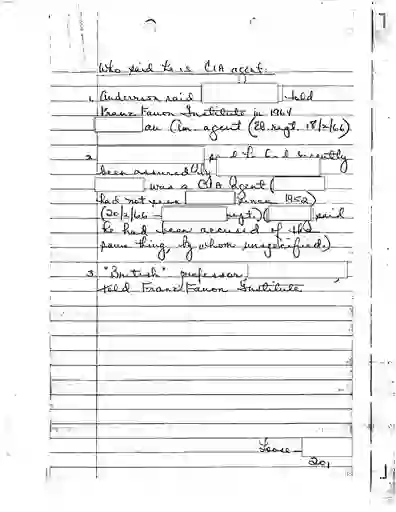 Who said he is CIA agent:
1. Anderson said told
Franz Fanon Institute in 1964
an Am. agent (Ed. rept. 18/2/66)
2. said he had recently
been assured by
was a CIA Agent (
had not seen since 1952)
(20/2/66 - rept.) ( said
he had been accused of the
same thing, by whom unspecified.)
3. "British" professor,
told Franz Fanon Institute
201